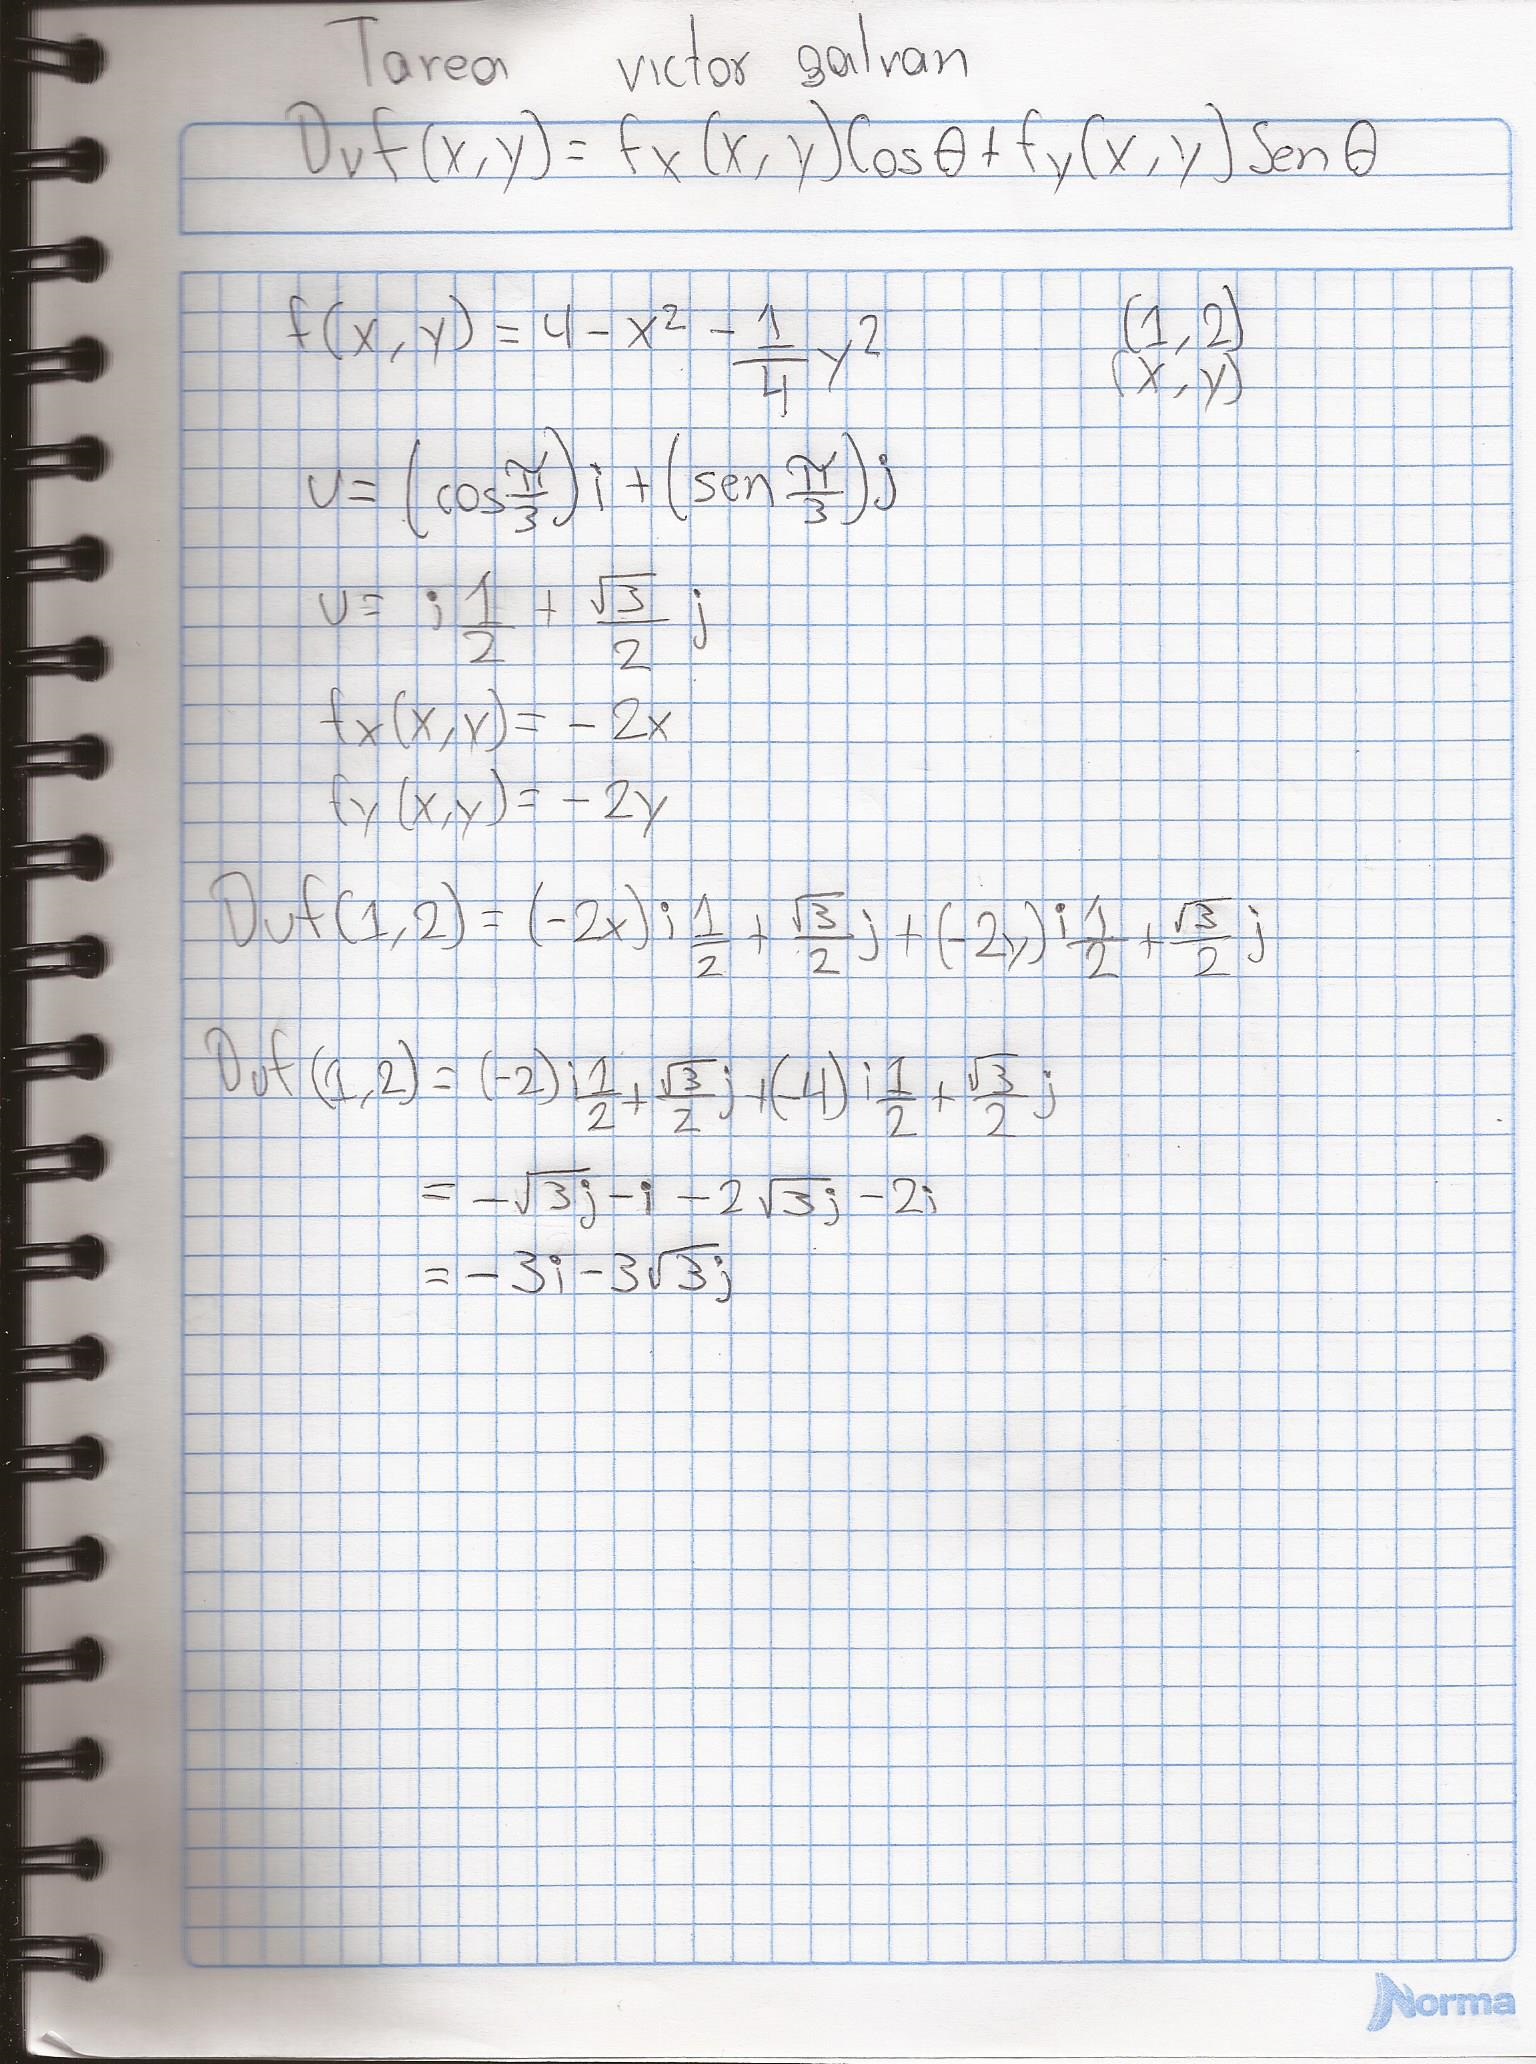 Tarea victor galvan
Duf(x,y) = fx(x,y)Cosθ+fy(x,y)Senθ
f(x,y) = 4 - x² - 1/4 y² (1,2)
(x,y)
u= (cos π/3)i + (sen π/3)j
u= i 1/2 + √3/2 j
fx(x,y)= -2x
fy(x,y)= -2y
Duf(1,2) = (-2x) i 1/2 + √3/2 j + (-2y) i 1/2 + √3/2 j
Duf(1,2) = (-2) i 1/2 + √3/2 j + (-4) i 1/2 + √3/2 j
= -√3j - i - 2√3j - 2i
= -3i - 3√3j
Norma